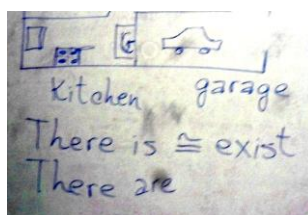 Kitchen garage
There is ≅ exist
There are